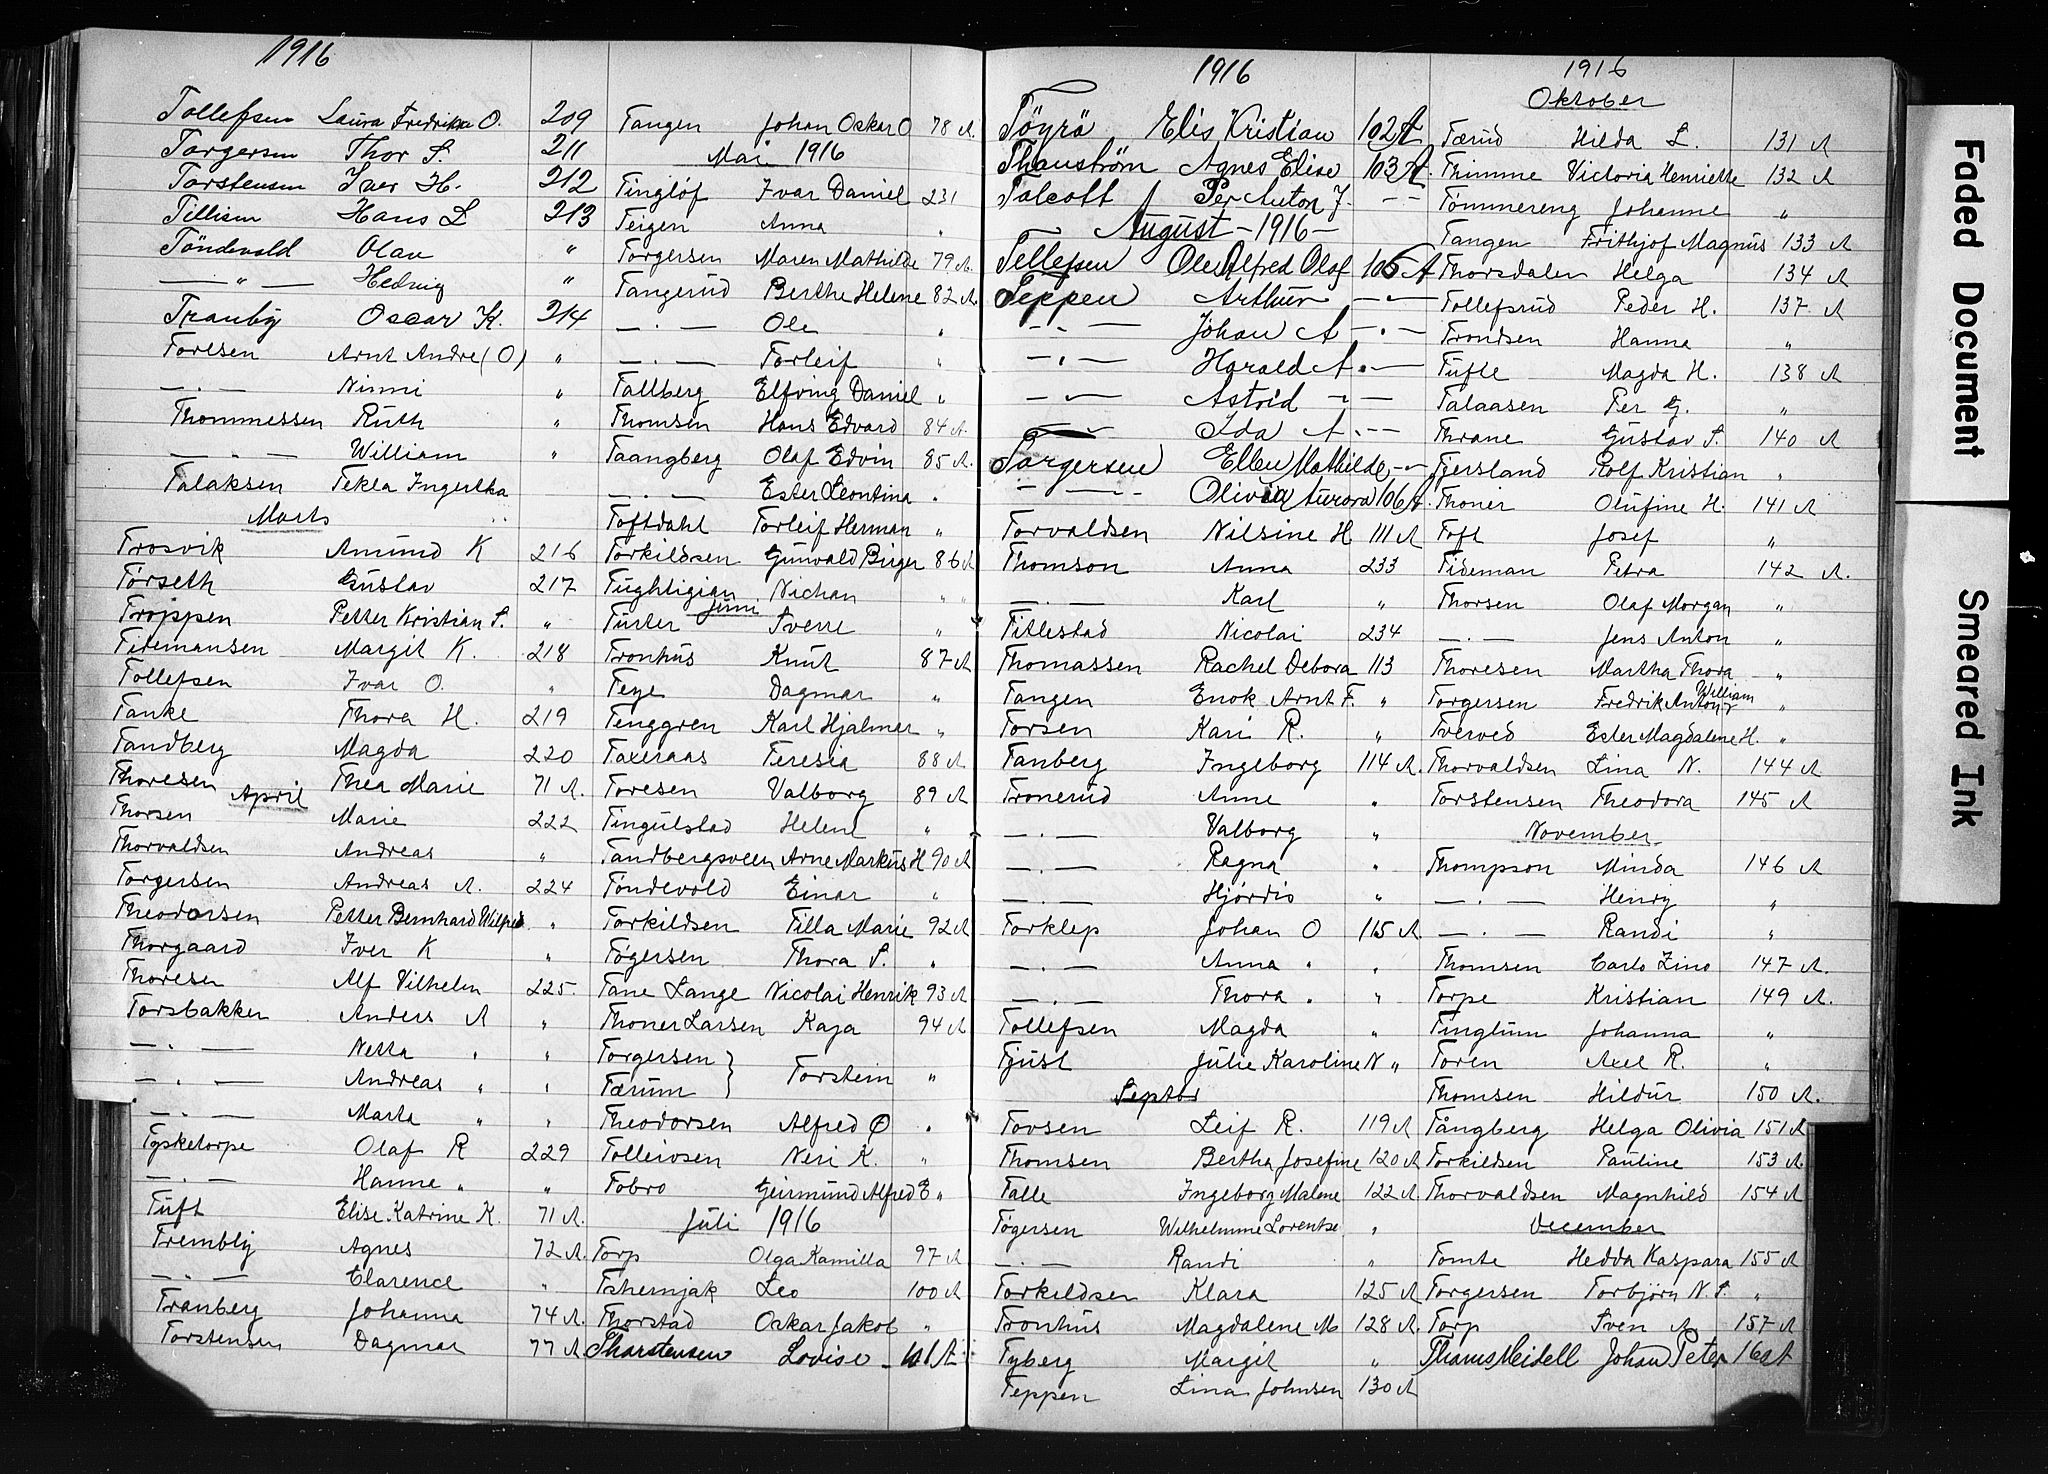 1916
Tollefsen Laura Fredrikke O. 209
Torgersen Thor S. 211
Torstensen Iver H. 212
Tillisen Hans L 213
Töndevold Olav "
— " — Hedvig "
Tranby Oscar K. 214
Toresen Arnt Andre (O) "
— . — Ninni "
Thommessen Ruth "
— . — William "
Talaksen Tekla Ingertha
Marts
Trosvik Amund K 216
Tørseth Gustav 217
Troppen Petter Kristian S. "
Tidemansen Margit K. 218
Tollefsen Ivar O. "
Tanke Thora H. 219
Tandberg Magda 220
Thoresen Thea Marie 71 A.
April
Thorsen Marie 222
Thorvaldsen Andreas "
Torgersen Andreas A. 224
Theodorsen Petter Bernhard Wilfred "
Thorgaard Iver K "
Thoresen Alf Vilhelm 225.
Torsbakken Anders A "
— . — Netta " "
— . — Andreas " "
— . — Marta " "
Tysketorpe Olaf R 229
— . — Hanne " "
Tuft Elise Katrine K. 71 A.
Trembly Agnes 72 A.
— . — Clarence "
Tranberg Johanna 74 A.
Torstensen Dagmar 77 A
Tangen Johan Oskar O 78 A.
Mai 1916
Tinglöf Ivar Daniel 231
Teigen Anna "
Torgersen Maren Mathilde 79 A.
Tangerud Berthe Helene 82 A.
— . — Ole "
— . — Torleif "
Tallberg Elfving Daniel "
Thomsen Hans Edvard 84 A.
Taangberg Olaf Edvin 85 A.
— . — Ester Leontina "
Toftdahl Torleif Herman "
Torkildsen Gunvald Birger 86 A
Tughligian Nichan "
Juni
Turter Sverre "
Tronhus Knut 87 A
Teye Dagmar "
Tenggren Karl Hjalmar "
Taxeraas Teresia 88 A
Toresen Valborg 89 A
Tingulstad Helene "
Tandbergsveen Arne Markus H 90 A
Tøndevold Einar "
Torkildsen Tilla Marie 92 A
Tøgersen Thora S. "
Tane Lange Nicolai Henrik 93 A
Thoner Larsen Kaja 94 A
Torgersen } Torstein "
Tærum
Theodorsen Alfred O "
Tolleivsen Neri K. "
Tobro Geirmund Alfred E "
Juli 1916
Torp Olga Kamilla 97 A
Tshernjak Leo 100 A
Thorstad Oskar Jakob "
Tharstensen Lovise 101 A
1916
Töyrö Elis Kristian 102 A
Thauström Agnes Elise 103 A
Talcott Per Anton J. — —
August – 1916 –
Tellefsen Ole Alfred Olaf 105 A
Teppen Arthur — " —
— " — Johan A — " —
— " — Harald A " —
— " — Astrid — " —
— " — Ida A — " —
Torgersen Ellen Mathilde — " —
— " — Olivia Aurora 106 A
Torvaldsen Nilsine H 111 A
Thomson Anna 233
— . — Karl "
Titlestad Nicolai 234
Thomassen Rachel Debora 113
Tangen Enok Arnt F. "
Torsen Kari R. "
Tanberg Ingeborg 114 A.
Tronerud Anne "
— . — Valborg "
— . — Ragna "
— . — Hjördis "
Torklep Johan O 115 A
— . — Anna " "
— . — Thora " "
Tollefsen Magda "
Tjust Julie Karoline N "
Septbr
Tovsen Leif R. 119 A
Thomsen Bertha Josefine 120 A
Talle Ingeborg Malene 122 A
Tøgersen Wilhelmine Lorentse "
— . — Randi "
Torkildsen Klara 125 A
Tronhus Magdalene M 128 A.
Tyberg Margit "
Teppen Lina Johnsen 130 A
1916
Oktober
Tærud Hilda L. 131 A
Thimme Victoria Henriette 132 A
Tömmereng Johanne "
Tangen Frithjof Magnus 133 A
Thorsdalen Helga 134 A
Tollefsrud Peder H. 137 A
Trondsen Hanna "
Tufte Magda H. 138 A
Talaasen Per G. "
Thrane Gustav S. 140 A
Tjersland Rolf Kristian "
Thoner Olufine H. 141 A
Toft Josef "
Tideman Petra 142 A.
Thorsen Olaf Morgan "
— . — Jens Anton "
Thoresen Martha Thora "
Torgersen Fredrik Anton William "
Tverved Ester Magdalene H. "
Thorvaldsen Lina N. 144 A
Torstensen Theodora 145 A
November
Thompson Minda 146 A
— . — Henry "
— . — Randi "
Thomsen Carlo Zino 147 A.
Torpe Kristian 149 A.
Tinglum Johanna "
Toren Axel R. "
Thomsen Hildur 150 A.
Tångberg Helga Olivia 151 A
Torkildsen Pauline 153 A
Thorvaldsen Magnhild 154 A
December
Tomte Hedda Kaspara 155 A
Torgersen Torbjörn N. S. "
Torp Sven A. 157 A
Thams Meidell Johan Peter 16 A
Faded Document
Smeared Ink